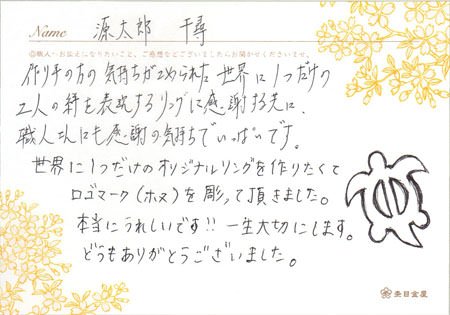 Name 源太郎 千尋
◎職人へお伝えになりたいこと、ご感想などございましたらお聞かせくださいませ。
作り手の方の気持ちがこめられた世界に1つだけの
2人の絆を表現するリングに感謝すると共に、
職人さんにも感謝の気持ちでいっぱいです。
世界に1つだけのオリジナルリングを作りたくて
ロゴマーク(ホヌ)を彫って頂きました。
本当にうれしいです!! 一生大切にします。
どうもありがとうございました。
杢目金屋